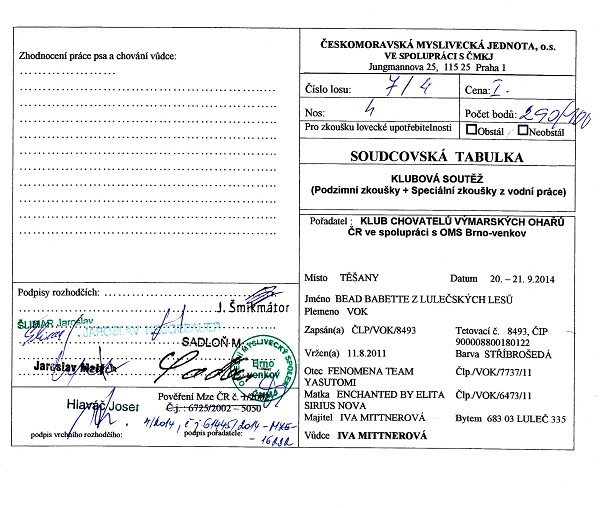 Zhodnocení práce psa a chování vůdce:
Podpisy rozhodčích:
J. Šmikmátor
ŠLIMAR Jaroslav
SADLOŇ M.
Jaroslav
MYSLIVECKÝ SPOLEK
Brno
venkov
Hlaváč Josef
Pověření Mze ČR č. 1/2002
Č.j. : 6725/2002 – 5050
podpis vrchního rozhodčího:
podpis pořadatele:
ČESKOMORAVSKÁ MYSLIVECKÁ JEDNOTA, o.s.
VE SPOLUPRÁCI S ČMKJ
Jungmannova 25, 115 25 Praha 1
Číslo losu: 7/4
Cena: I.
Nos: 4
Počet bodů: 290/100
Pro zkoušku lovecké upotřebitelnosti
Obstál / Neobstál
SOUDCOVSKÁ TABULKA
KLUBOVÁ SOUTĚŽ
(Podzimní zkoušky + Speciální zkoušky z vodní práce)
Pořadatel : KLUB CHOVATELŮ VÝMARSKÝCH OHAŘŮ
ČR ve spolupráci s OMS Brno-venkov
Místo TĚŠANY Datum 20. – 21. 9.2014
Jméno BEAD BABETTE Z LULEČSKÝCH LESŮ
Plemeno VOK
Zapsán(a) ČLP/VOK/8493 Tetovací č. 8493, ČIP
900008800180122
Vržen(a) 11.8.2011 Barva STŘÍBROŠEDÁ
Otec FENOMENA TEAM Člp./VOK/7737/11
YASUTOMI
Matka ENCHANTED BY ELITA Člp./VOK/6473/11
SIRIUS NOVA
Majitel IVA MITTNEROVÁ Bytem 683 03 LULEČ 335
Vůdce IVA MITTNEROVÁ